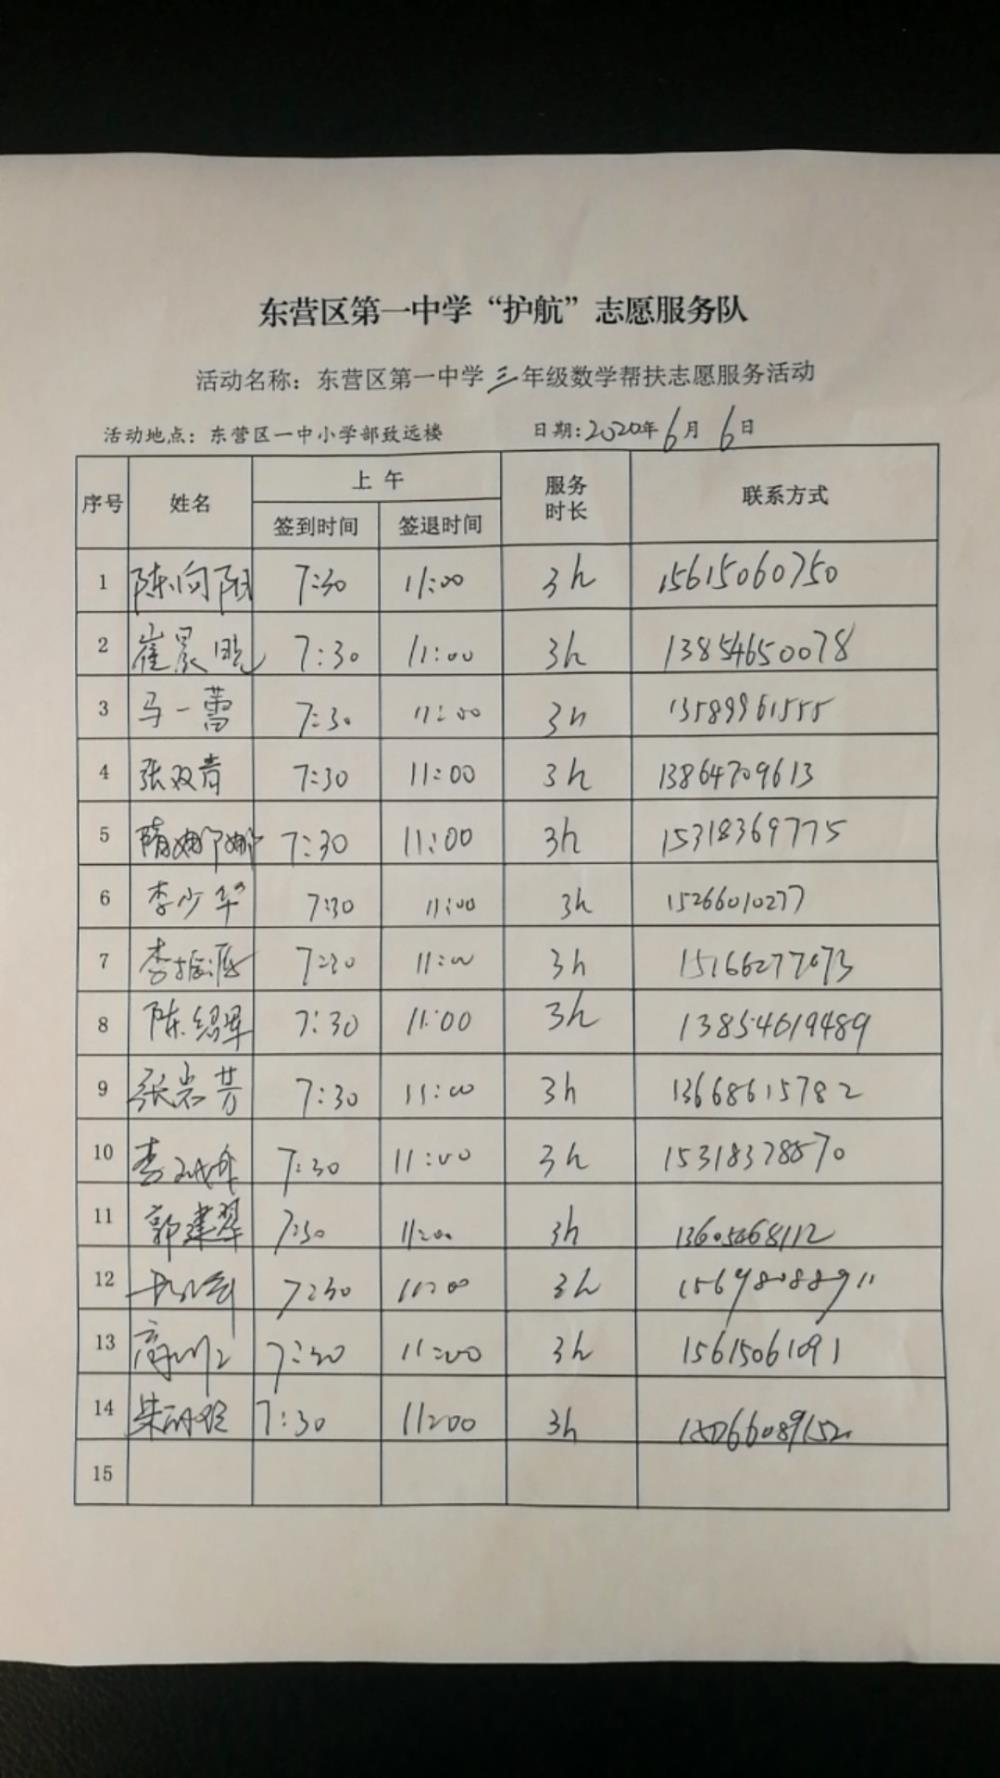 东营区第一中学“护航”志愿服务队
活动名称：东营区第一中学三年级数学帮扶志愿服务活动
活动地点：东营区一中小学部致远楼 日期：2020年6月6日
序号 姓名 上午 服务时长 联系方式
签到时间 签退时间
1 陈向阳 7:30 11:00 3h 15615060750
2 崔景晓 7:30 11:00 3h 13854650078
3 马一蕾 7:30 11:00 3h 13589961555
4 张双青 7:30 11:00 3h 13864709613
5 隋娜娜 7:30 11:00 3h 15318369775
6 李少华 7:30 11:00 3h 15266010277
7 李振海 7:30 11:00 3h 15166277073
8 陈绍军 7:30 11:00 3h 13854619489
9 张岩芳 7:30 11:00 3h 13668615782
10 李 7:30 11:00 3h 15318378870
11 郭建翠 7:30 11:00 3h 13605468112
12 7:30 11:00 3h
13 高 7:30 11:00 3h 15615061091
14 朱 7:30 11:00 3h
15